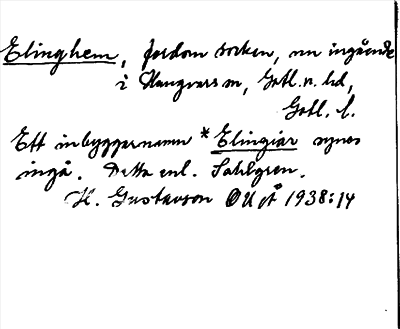 Elinghem, fordom socken, nu ingående
i Hangvars sn, Gotl. n. hd,
Gotl. l.
Ett inbyggarnamn *Elingiar synes
ingå. Detta enl. Sahlgren.
H. Gustavson OUÅ 1938:14